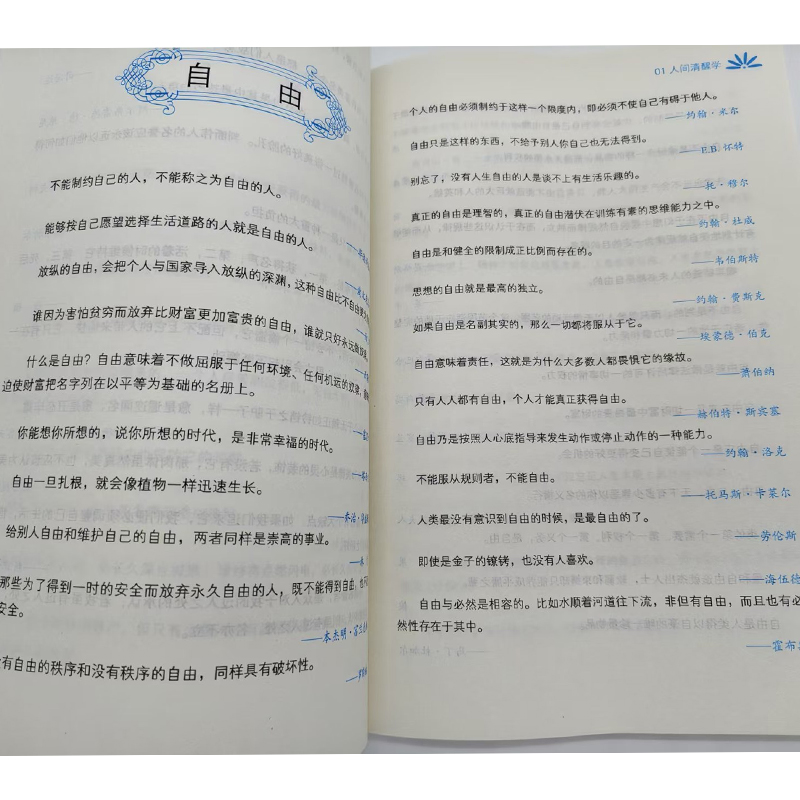 自 由
不能制约自己的人，不能称之为自由的人。
能够按自己愿望选择生活道路的人就是自由的人。
放纵的自由，会把个人与国家导入放纵的深渊，这种自由比不自由
谁因为害怕贫穷而放弃比财富更加富贵的自由，谁就只好永远
什么是自由？自由意味着不做屈服于任何环境、任何机运的奴隶，
迫使财富把名字列在以平等为基础的名册上。
你能想你所想的，说你所想的时代，是非常幸福的时代。
自由一旦扎根，就会像植物一样迅速生长。
——乔治·华
给别人自由和维护自己的自由，两者同样是崇高的事业。
那些为了得到一时的安全而放弃永久自由的人，既不能得到自由，也
安全。
——本杰明·富兰
有自由的秩序和没有秩序的自由，同样具有破坏性。
01 人间清醒学
个人的自由必须制约于这样一个限度内，即必须不使自己有碍于他人。
——约翰·米尔
自由只是这样的东西，不给予别人你自己也无法得到。
——E.B.怀特
别忘了，没有人生自由的人是谈不上有生活乐趣的。
——托·穆尔
真正的自由是理智的，真正的自由潜伏在训练有素的思维能力之中。
——约翰·杜威
自由是和健全的限制成正比例而存在的。
——韦伯斯特
思想的自由就是最高的独立。
——约翰·费斯克
如果自由是名副其实的，那么一切都将服从于它。
——埃蒙德·伯克
自由意味着责任，这就是为什么大多数人都畏惧它的缘故。
——萧伯纳
只有人人都有自由，个人才能真正获得自由。
——赫伯特·斯宾塞
自由乃是按照人心底指导来发生动作或停止动作的一种能力。
——约翰·洛克
不能服从规则者，不能自由。
——托马斯·卡莱尔
人类最没有意识到自由的时候，是最自由的了。
——劳伦斯
即使是金子的镣铐，也没有人喜欢。
——海伍德
自由与必然是相容的。比如水顺着河道往下流，非但有自由，而且也有必
然性存在于其中。
——霍布